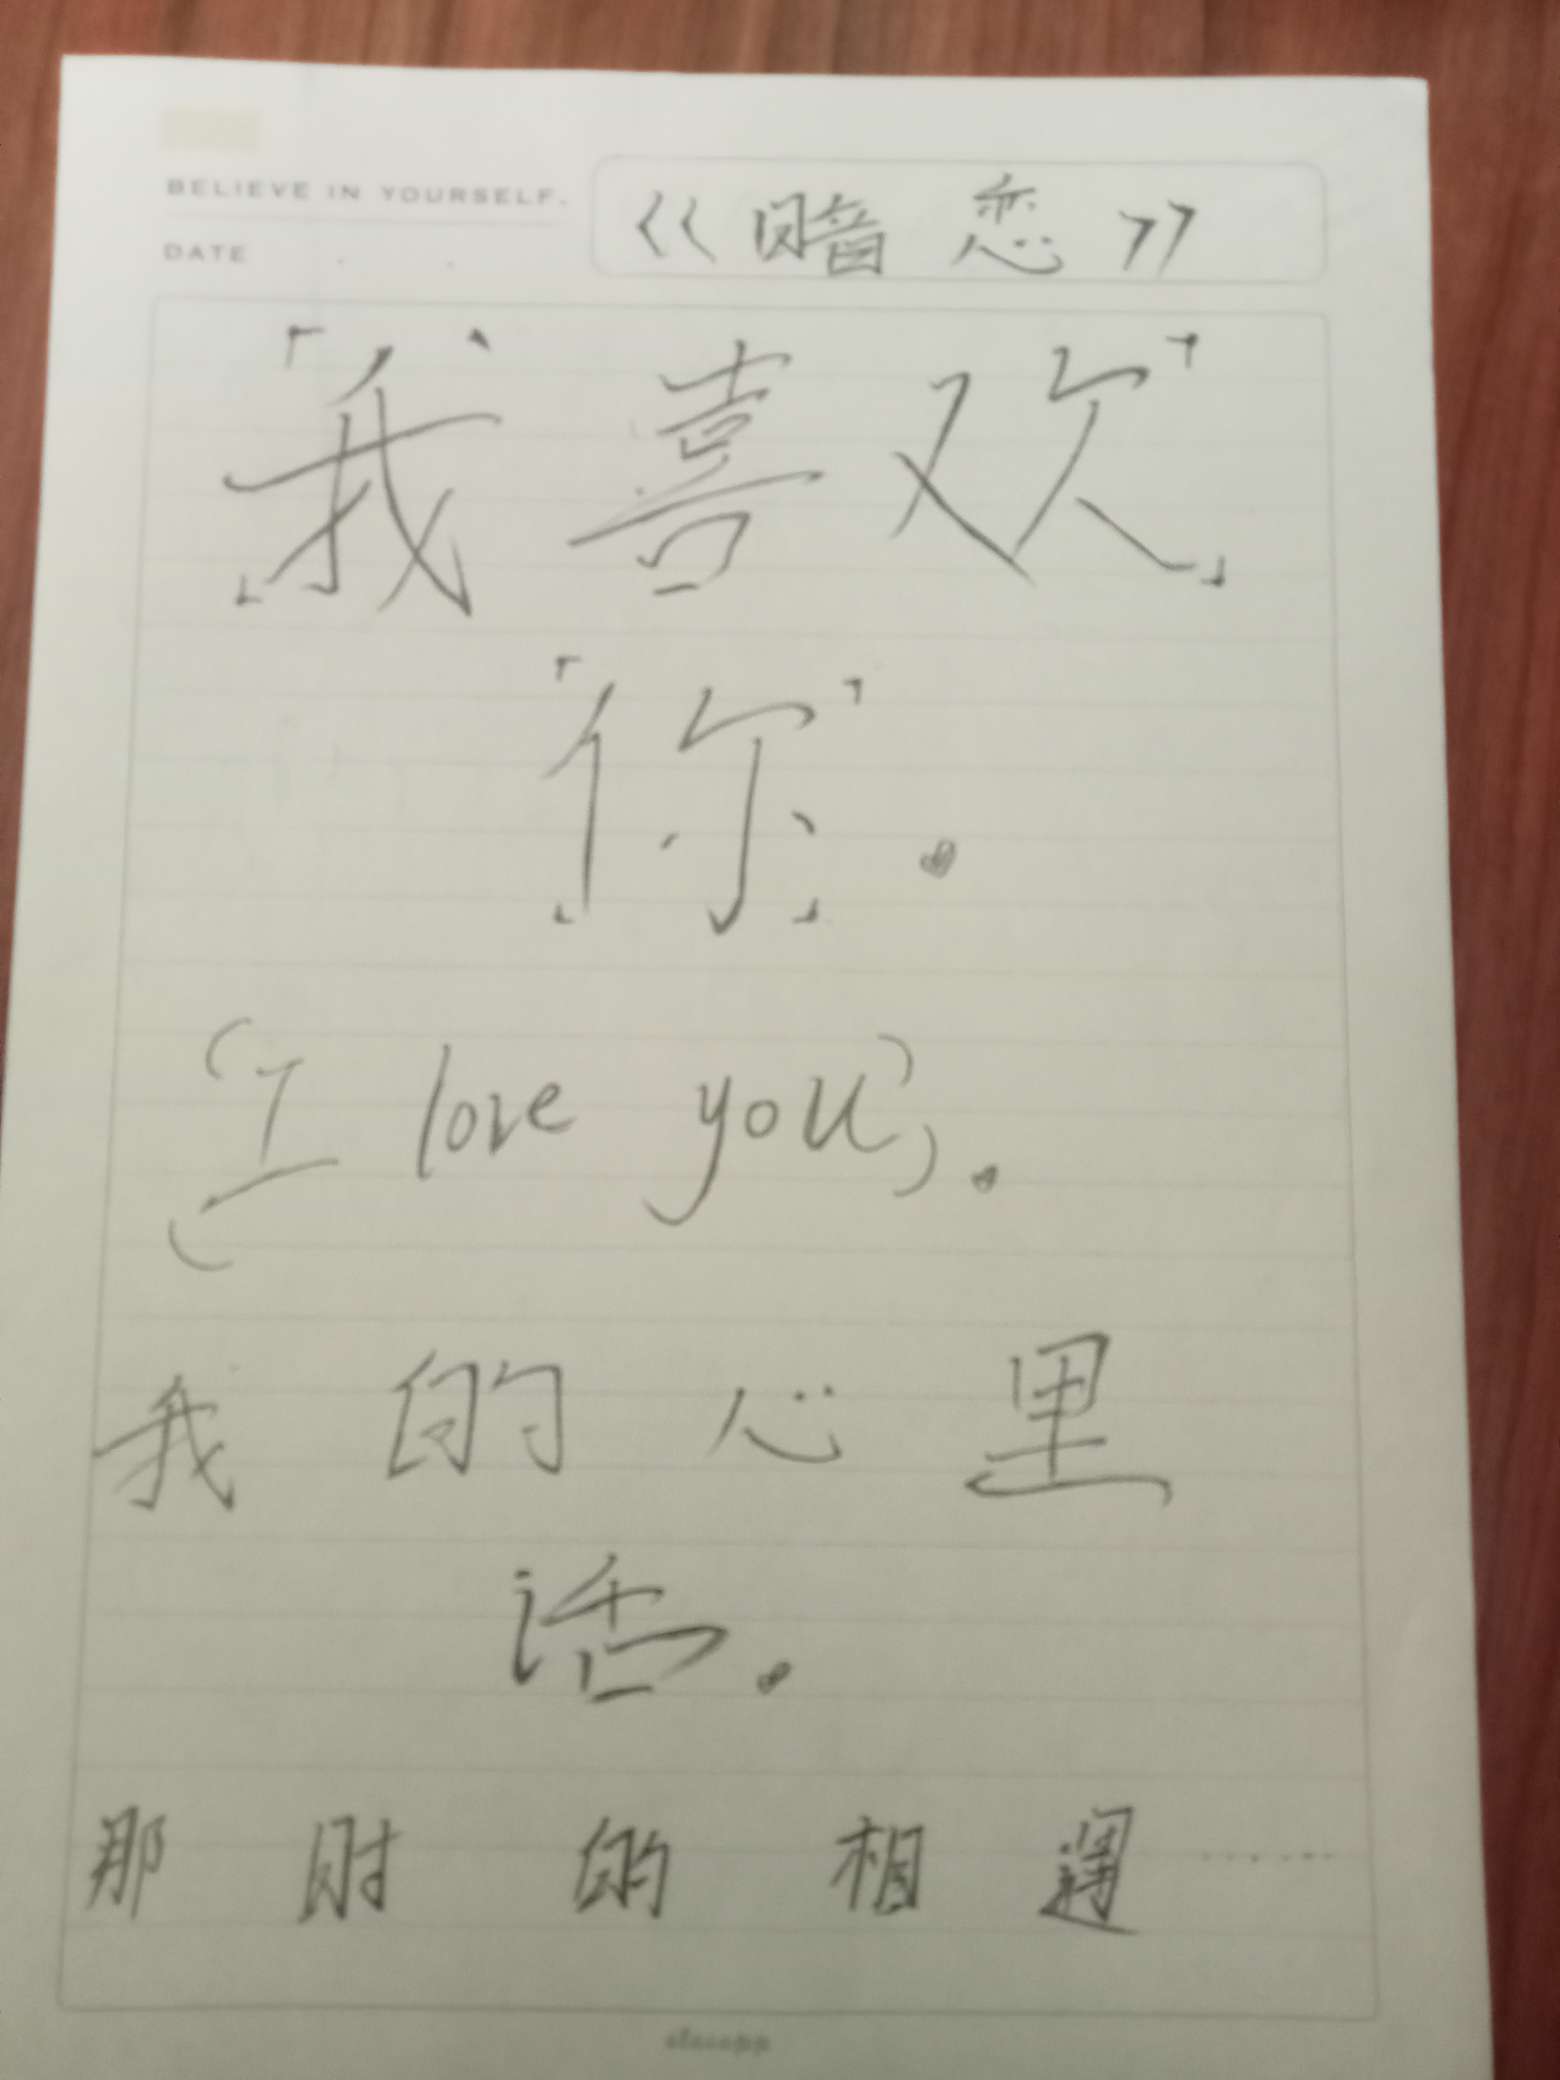 BELIEVE IN YOURSELF.
《暗恋》
DATE
「我喜欢」
「你」。
(I love you)。
我的心里
话。
那时的相遇……